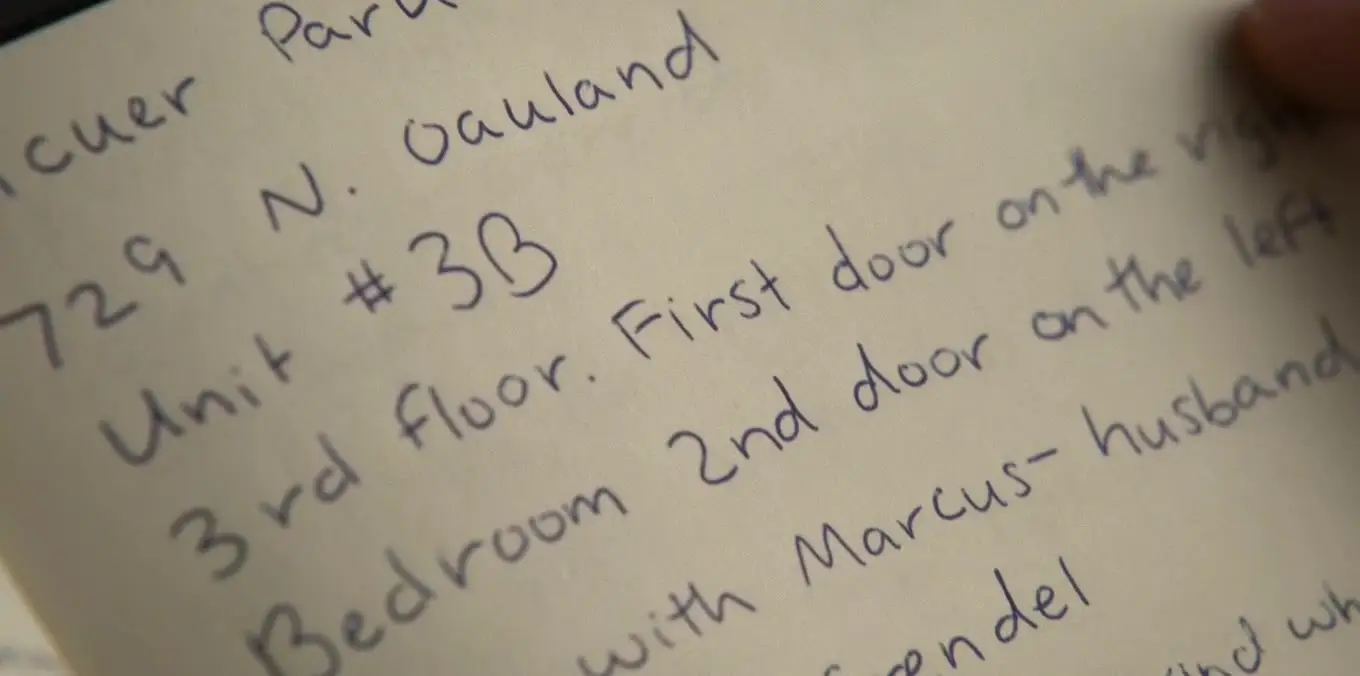 icuer Par
729 N. Oauland
Unit #3B
3rd floor. First door on the right
Bedroom 2nd door on the left
with Marcus- husband
endel
and wh